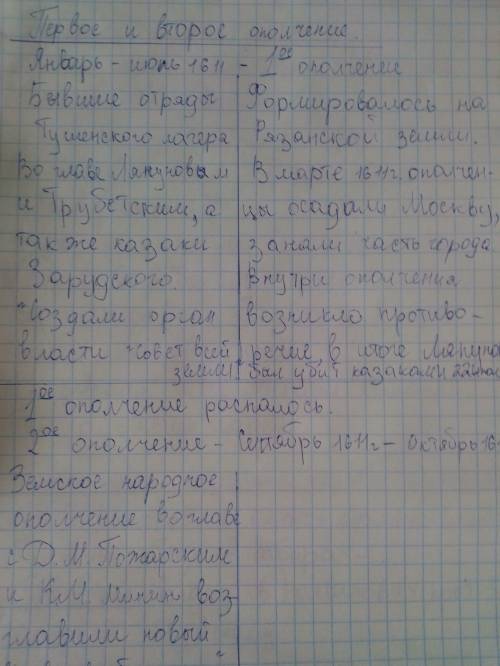 Первое и второе ополчение.
Январь - июль 1611 - 1ое ополчение
Бывшие отряды
Тушенского лагеря
Во главе Ляпуновым
и Трубетским, а
также казаки
Зарудского.
создали орган
власти "совет всей
земли"
Формировалось на
Рязанской земли.
В марте 1611 г. ополчен-
цы осадали Москву,
заняли часть города
Внутри ополчения
возникло противо-
речие, в итоге Ляпуно
был убит казаками 22 июл
1ое ополчение распалось.
2ое ополчение - Сентябрь 1611 г - октябрь 16
Земское народное
ополчение во главе
с Д.М. Пожарским
и К.М. Минин воз-
главили новый